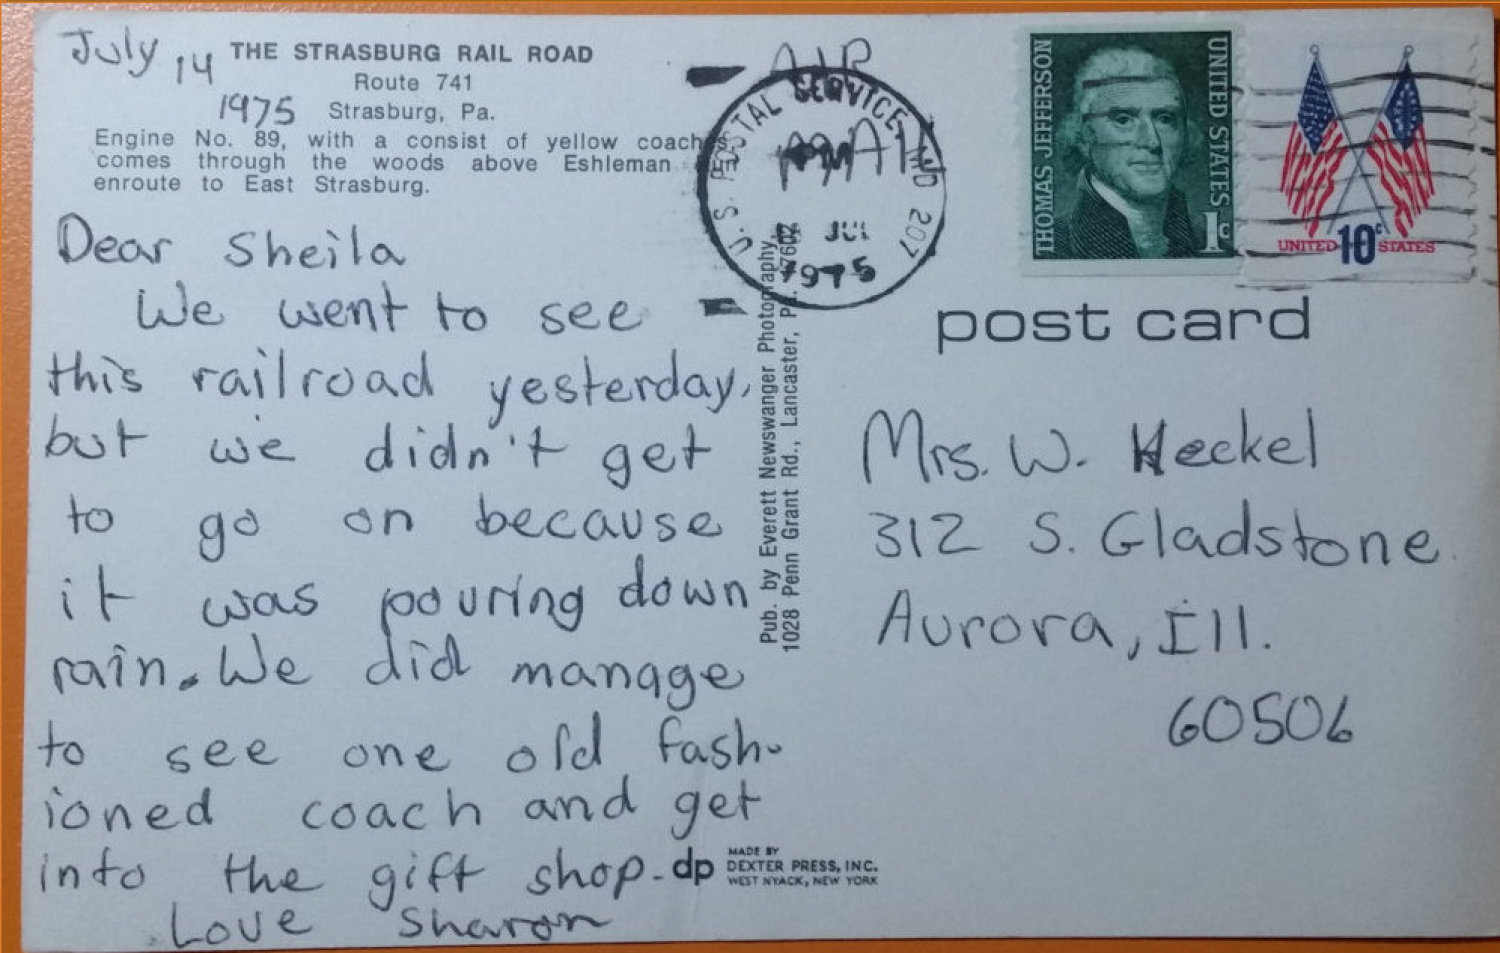 July 14
1975
THE STRASBURG RAIL ROAD
Route 741
Strasburg, Pa.
Engine No. 89, with a consist of yellow coaches,
comes through the woods above Eshleman
enroute to East Strasburg.
Dear Sheila
We went to see
this railroad yesterday,
but we didn't get
to go on because
it was pouring down
rain. We did manage
to see one old fash-
ioned coach and get
into the gift shop.
Love Sharon
Pub. by Everett Newswanger Photography,
1028 Penn Grant Rd., Lancaster, Pa. 17602
dp
MADE BY
DEXTER PRESS, INC.
WEST NYACK, NEW YORK
AIR
MAIL
U.S. POSTAL SERVICE
207
JUL
1975
THOMAS JEFFERSON
UNITED STATES
1c
UNITED 10c STATES
post card
Mrs. W. Heckel
312 S. Gladstone
Aurora, Ill.
60506